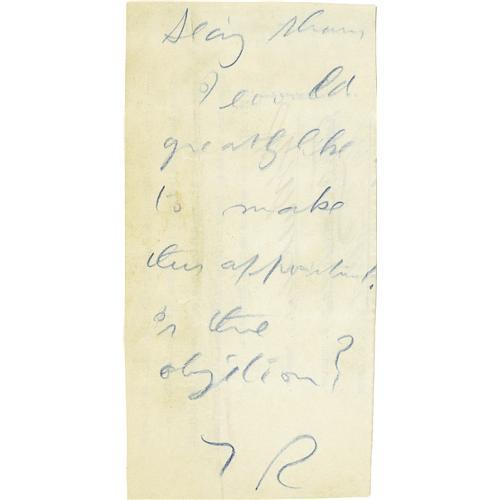 Secy Shaw
I would
greatly like
to make
this appointmt.
Is there
objection?
T R